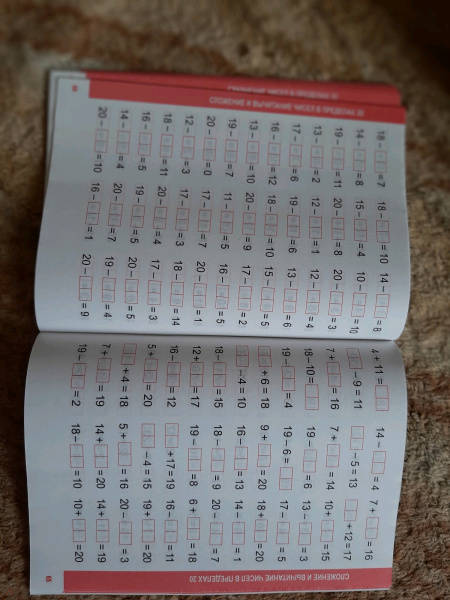 СЛОЖЕНИЕ И ВЫЧИТАНИЕ ЧИСЕЛ В ПРЕДЕЛАХ 20
18 − □ = 7 18 − □ = 10 14 − □ = 8
14 − □ = 8 15 − □ = 4 10 − □ = 10
19 − □ = 11 20 − □ = 8 20 − □ = 3
13 − □ = 2 12 − □ = 1 12 − □ = 4
17 − □ = 6 19 − □ = 6 13 − □ = 6
16 − □ = 12 18 − □ = 10 15 − □ = 5
13 − □ = 10 20 − □ = 9 17 − □ = 2
19 − □ = 7 11 − □ = 5 16 − □ = 5
20 − □ = 0 17 − □ = 7 20 − □ = 1
12 − □ = 3 17 − □ = 3 18 − □ = 14
18 − □ = 11 20 − □ = 4 17 − □ = 3
16 − □ = 5 19 − □ = 5 20 − □ = 5
14 − □ = 4 20 − □ = 7 19 − □ = 4
20 − □ = 10 16 − □ = 1 20 − □ = 9
СЛОЖЕНИЕ И ВЫЧИТАНИЕ ЧИСЕЛ В ПРЕДЕЛАХ 20
4 + 11 = □ 14 − □ = 4 7 + □ = 16
□ − 9 = 11 □ − 5 = 13 □ + 12 = 17
7 + □ = 16 7 + □ = 14 10 + □ = 15
18 − 10 = □ 19 − □ = 6 13 − □ = 3
19 − □ = 4 19 − 6 = □ 17 − □ = 5
□ + 6 = 18 9 + □ = 20 18 + □ = 20
□ − 4 = 10 16 − □ = 13 14 − □ = 1
18 − □ = 15 18 − □ = 9 20 − □ = 7
12 + □ = 17 19 − □ = 8 6 + □ = 18
16 − □ = 12 □ + 17 = 19 16 − □ = 11
5 + □ = 20 □ − 4 = 15 19 + □ = 20
□ + 4 = 18 5 + □ = 16 20 − □ = 3
7 + □ = 19 14 + □ = 20 14 + □ = 19
19 − □ = 2 18 − □ = 10 10 + □ = 20